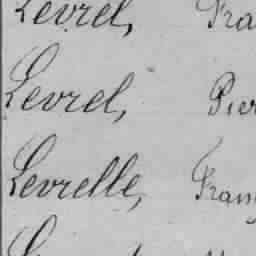 Levrel, Fra
Levrel, Pier
Levrelle, Franç